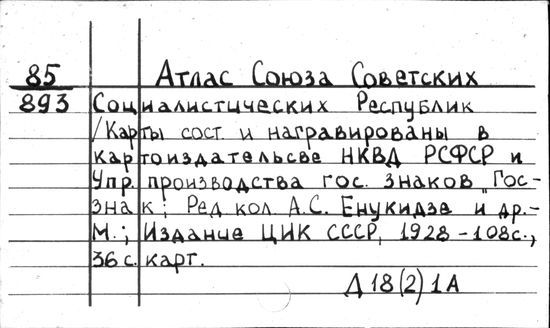 85 Атлас Союза Советских
893 Социалистических Республик
/Карты сост. и награвированы в
картоиздательсве НКВД РСФСР и
Упр. производства гос. знаков „Гос-
знак; Ред. кол. А.С. Енукидзе и др.-
М.; Издание ЦИК СССР, 1928-108с.,
36 с. карт.
Д 18(2) 1А